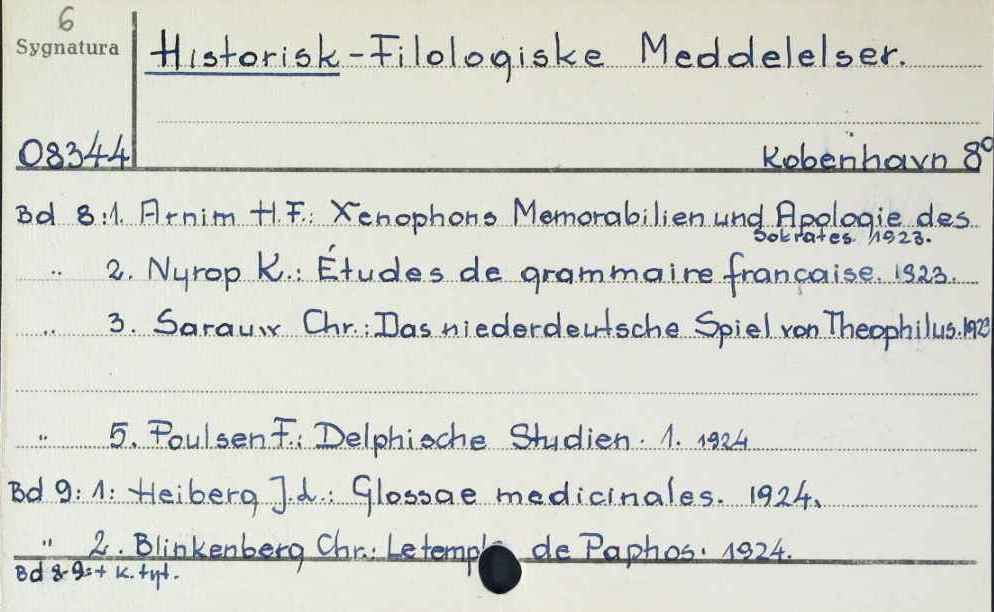 6
Sygnatura
Historisk-Filologiske Meddelelser.
08344
København 8°
Bd 8:1. Arnim H.F.: Xenophons Memorabilien und Apologie des
Sokrates 1923.
.. 2. Nyrop K.: Études de grammaire française. 1923.
.. 3. Sarauw Chr.: Das niederdeutsche Spiel von Theophilus. 1923
" 5. Poulsen F.: Delphische Studien. 1. 1924
Bd 9: 1: Heiberg J.L.: Glossae medicinales. 1924.
" 2. Blinkenberg Chr.: Le temple de Paphos. 1924.
Bd 8-9: + K. tyt.